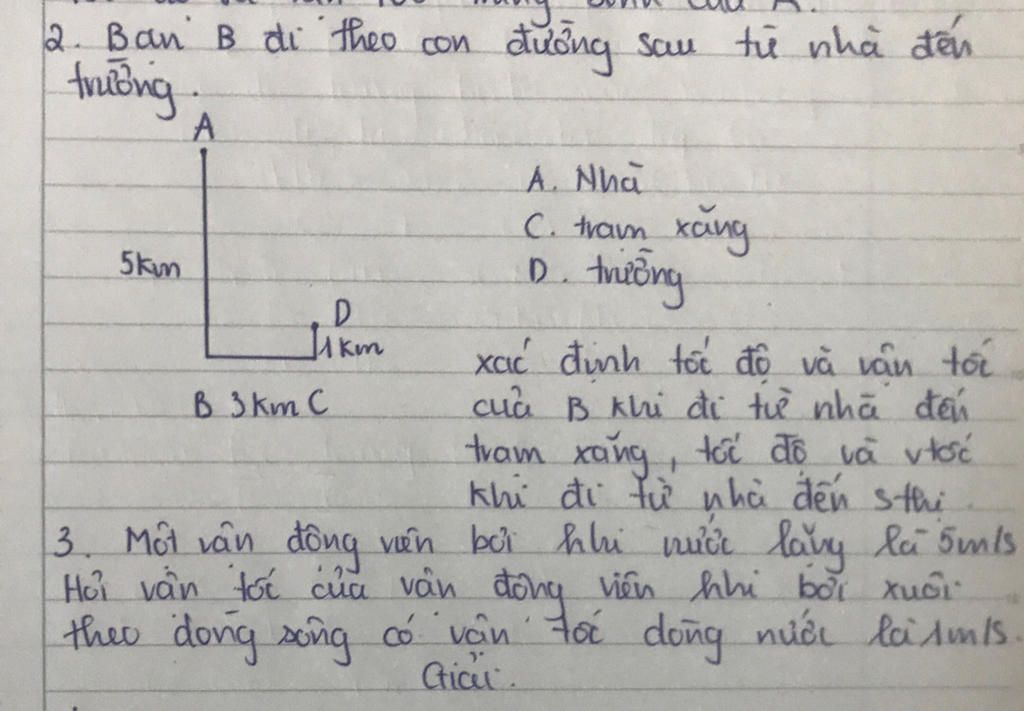 2. Bạn B đi theo con đường sau từ nhà đến
trường.
A
A. Nhà
C. trạm xăng
5km
D. trường
D
1km
xác định tốc độ và vận tốc
B 3km C
của B khi đi từ nhà đến
trạm xăng, tốc độ và vtốc
khi đi từ nhà đến s thị.
3. Một vận động viên bơi khi nước lặng là 5m/s
Hỏi vận tốc của vận động viên khi bơi xuôi
theo dòng sông có vận tốc dòng nước là 1m/s.
Giải.